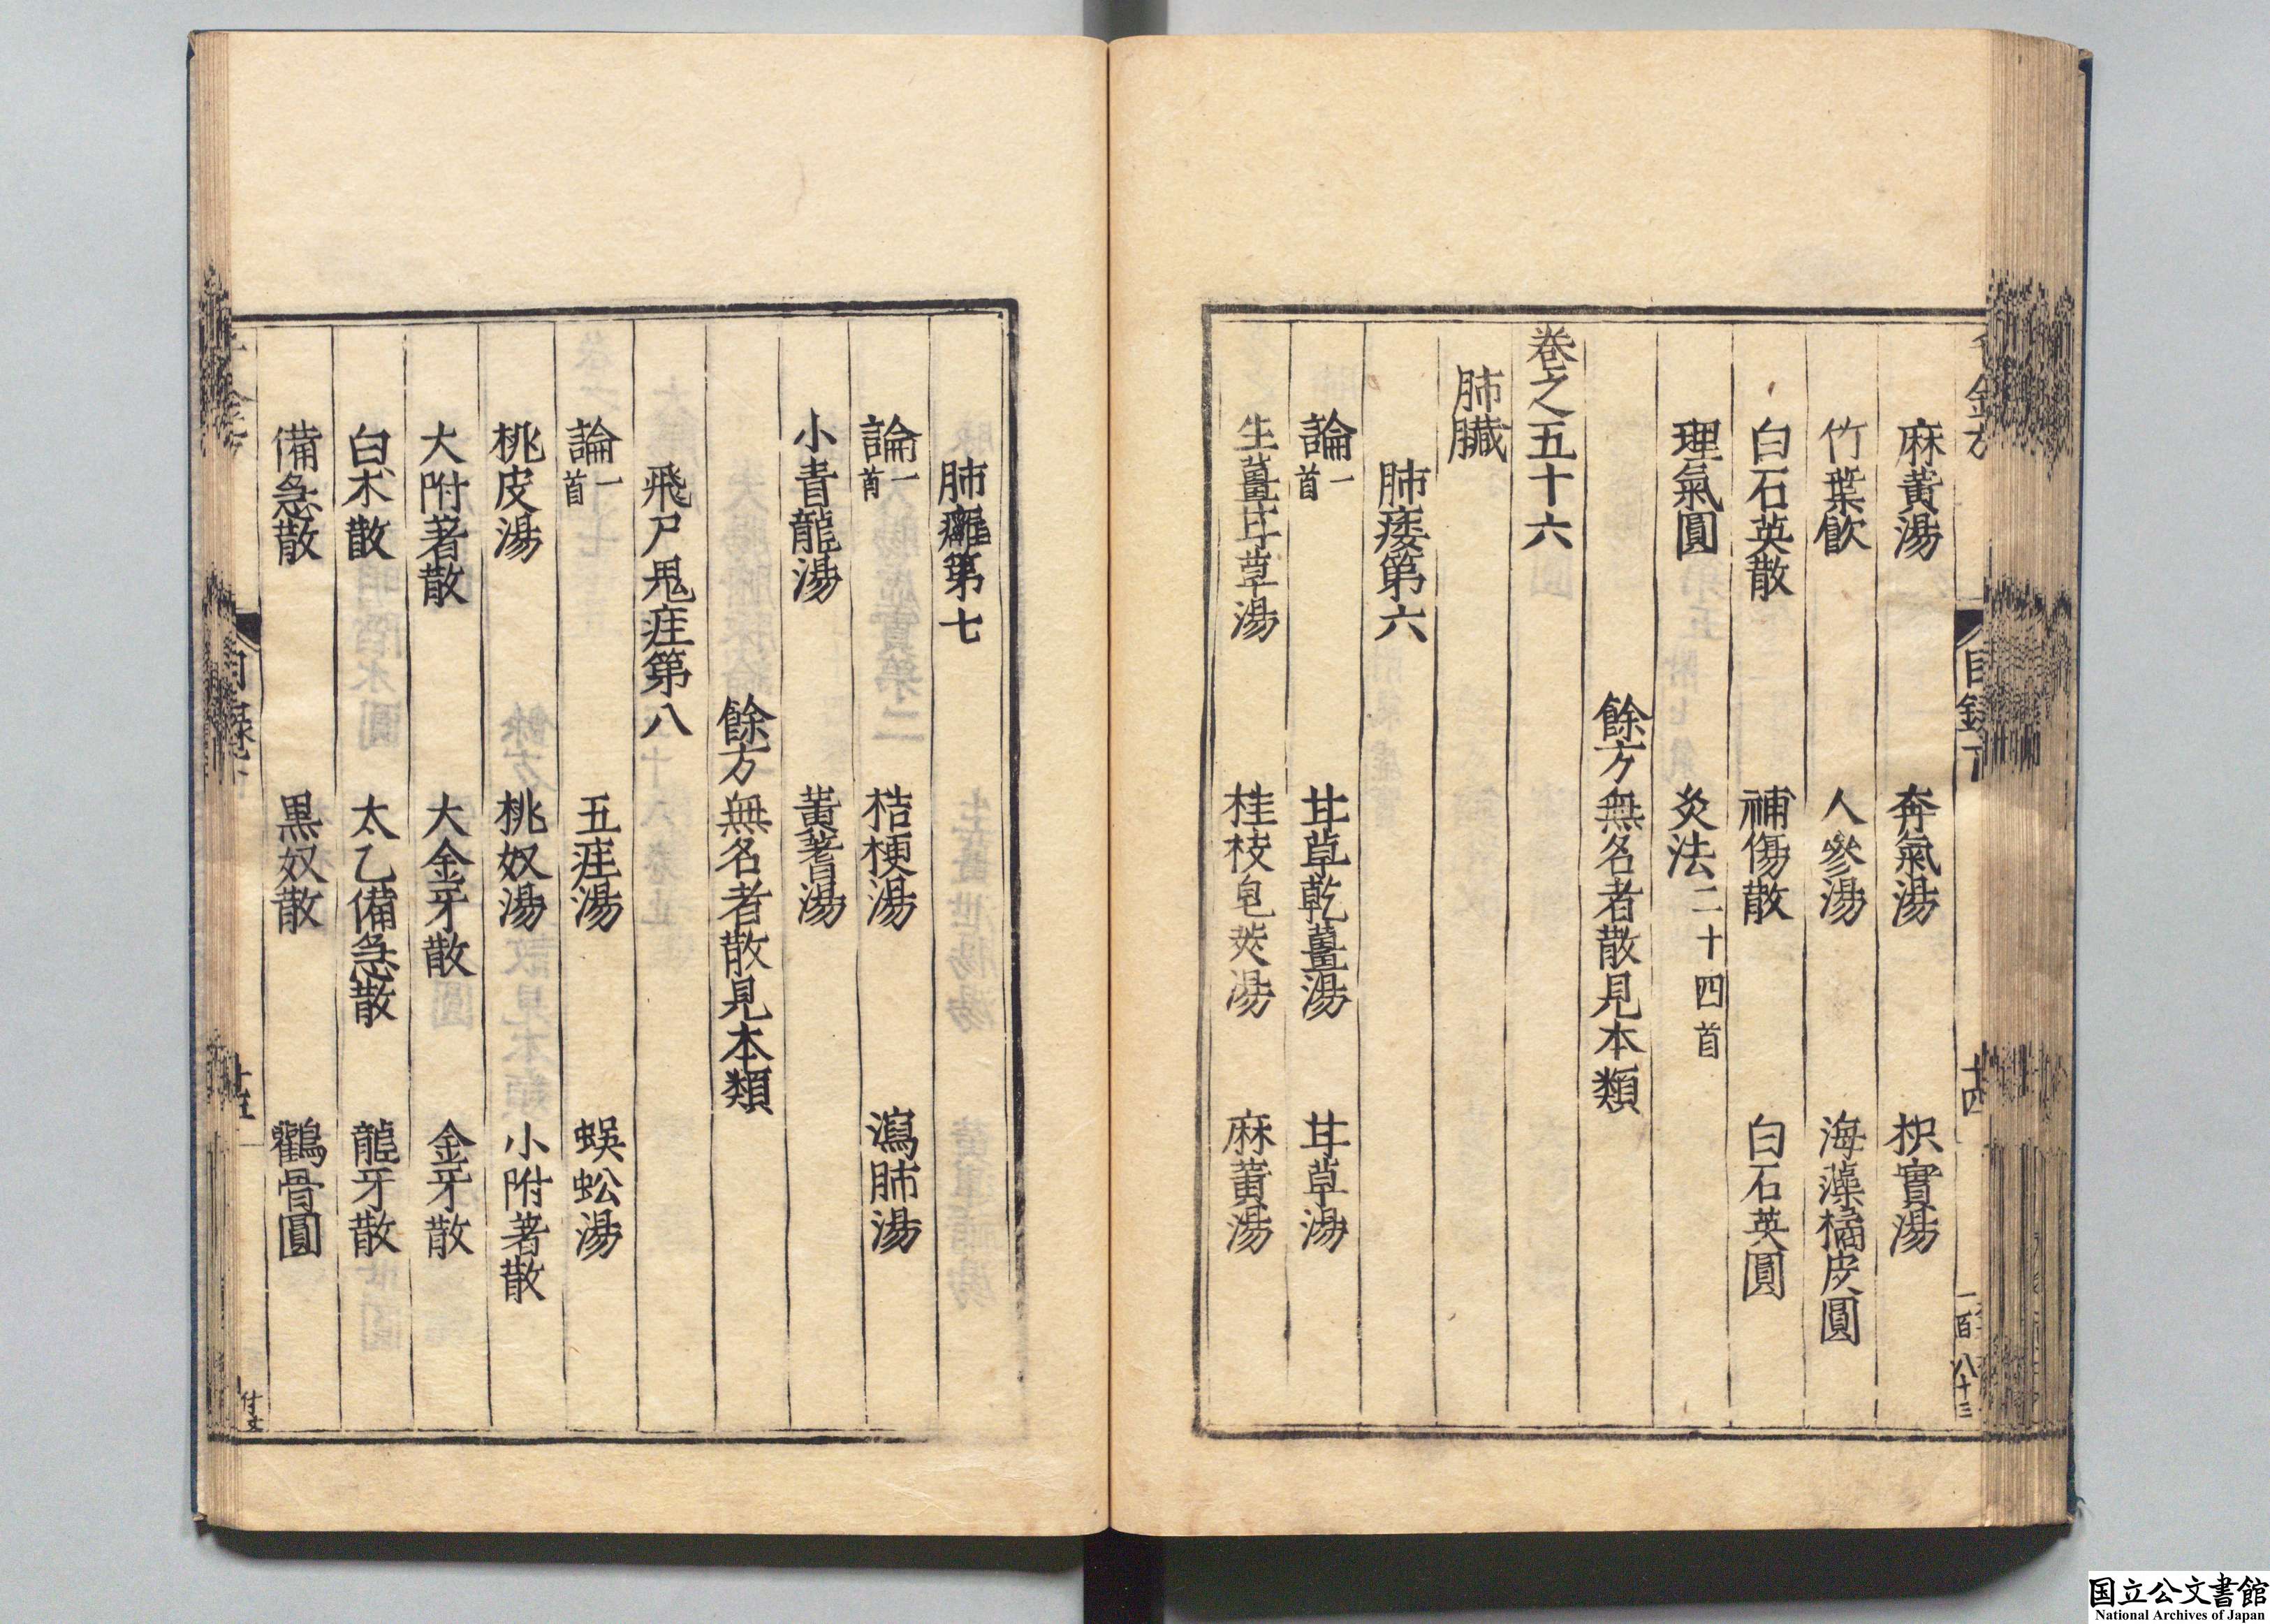 麻黃湯　奔氣湯　枳實湯
竹葉飲　人參湯　海藻橘皮圓
白石英散　補傷散　白石英圓
理氣圓　灸法二十四首
餘方無名者散見本類
卷之五十六
肺臟
肺痿第六
論一首　甘草乾薑湯　甘草湯
生薑甘草湯　桂枝皂莢湯　麻黃湯
目錄下
十四
一百八十三
肺癰第七
論一首　桔梗湯　瀉肺湯
小青龍湯　黃蓍湯
餘方無名者散見本類
飛尸鬼疰第八
論一首　五疰湯　蜈蚣湯
桃皮湯　桃奴湯　小附著散
大附著散　大金牙散　金牙散
白朮散　太乙備急散　龍牙散
備急散　黑奴散　鸛骨圓
国立公文書館
National Archives of Japan